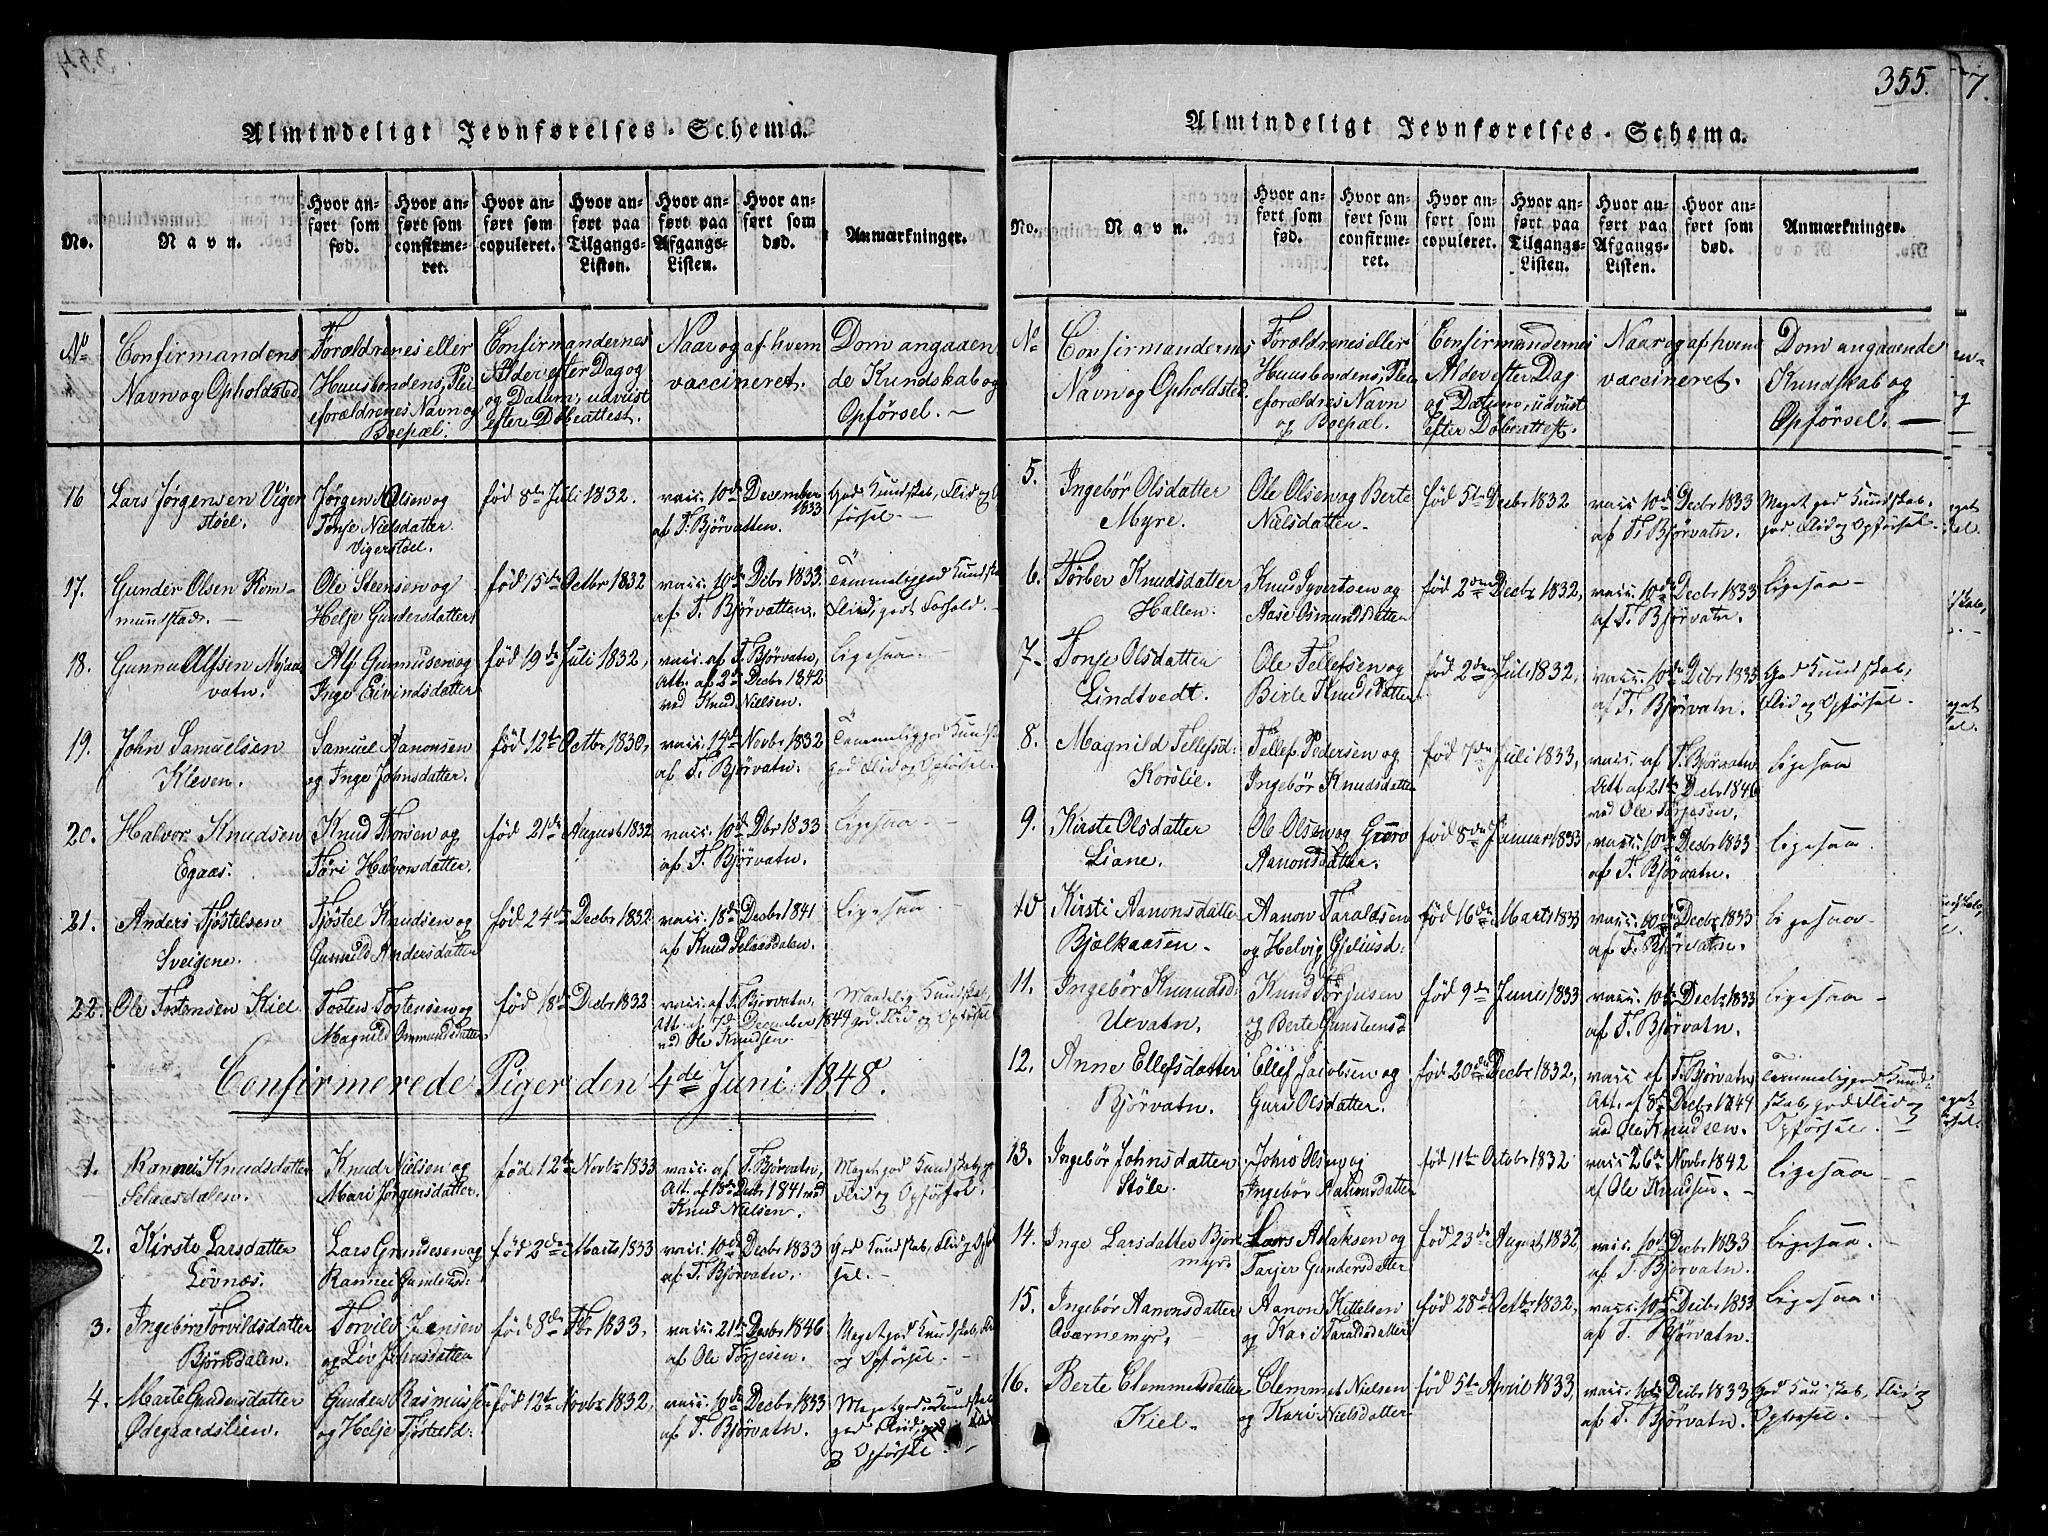 355.
Almindeligt Jevnførelses-Schema.
No.
Navn.
Hvor anført som fød.
Hvor anført som confirmeret.
Hvor anført som copuleret.
Hvor anført paa Tilgangs-Listen.
Hvor anført paa Afgangs-Listen.
Hvor anført som død.
Anmærkninger.
No
Confirmandens
Navn og Opholdsted
Forældrenes eller
Huusbondens, Plei
eforældrenes Navn og
Boepæl.
Confirmandernes
Alder efter Dag og
og Datum, udviist
efter Døbeattest.
Naar og af hvem
vaccineret.
Dom angaaen
de Kundskab og
Opførsel. –
16
Lars Jørgensen Viger
støel.
Jørgen Nilsen og
Tønje Nielsdatter
Vigerstøel.
fød 8de Juli 1832.
vacc. 10de December
1833
af T. Bjørvatten.
God Kundskab, Flid og Op
førsel. –
17.
Gunder Olsen Rom-
mundstad. –
Ole Steensen og
Helje Gundersdatter
fød 15de Octbr 1832
vacc. 10de Decbr 1833.
af T. Bjørvatten.
Temmelig god Kundska
Flid, godt Forhold. –
18.
Gunnu Alfsen Mjaa
vatn.
Alf Gunnusen og
Inge Eivindsdatter
fød 19de Juli 1832,
vacc. af T. Bjørvatn,
Att. af 2de Decbr 1842
ved Knud Nielsen.
Ligesaa. –
19.
John Samuelsen
Kleven.
Samuel Aanonsen
og Inge Johnsdatter.
fød 12te Octbr 1830,
vacc. 14de Novbr 1832
af T. Bjørvatn.
Temmelig god Kundsk
god Flid og Opførsel.
20.
Halvor Knudsen
Egaas.
Knud Thorsen og
Tøri Halvorsdatter.
fød 21de August 1832
vacc. 10de Dbr 1833
af T. Bjørvatn.
Ligesaa –
21.
Anders Tjøstelsen
Sveigene.
Tjøstel Knudsen og
Gunnild Andersdatter
fød 24de Decbr 1832
vacc. 18de Decbr 1841
af Knud Selaasdalen.
Ligesaa –
22.
Ole Tostensen Kiel
Tosten Tostensen og
Magnild Ommundsdatter
fød 18de Decbr 1832
vacc. af T. Bjørvatn,
Att. af 7de December 1844
ved Ole Knudsen.
Maadelig Kundskab,
god Flid og Opførsel
Confirmerede Piger den 4de Juni 1848.
1.
Rannei Knudsdatter
Selaasdalen.
Knud Nielsen og
Mari Jørgensdatter.
fød 12te Novbr 1833
vacc. af T. Bjørvatn,
Att. af 18de Decbr 1841 ved
Knud Nielsen.
Meget god Kundskab, god
Flid og Opførsel.
2.
Kirste Larsdatter
Løvnæs.
Lars Grundesen og
Rannei Gunleiksd:
fød 2de Marts 1833
vacc. 10de Decbr 1833
af T. Bjørvatn.
God Kundskab, Flid og Opfør
sel. –
3.
Ingebør Torvildsdatter
Bjørndalen.
Torvild Jensen
og Liv Johnsdatter
fød 8de Fbr 1833,
vacc. 21de Decbr 1846
af Ole Torjesen.
Meget god Kundskab, Flid
og Opførsel. –
4.
Marte Gundersdatter
Ødegaardslien.
Gunder Rasmussen
og Helje Tjøstelsd.
fød 12te Novbr 1832,
vacc. 10de Decbr 1833
af T. Bjørvatn.
Meget god Kundskab
god Flid, god
og Opførsel. –
Almindeligt Jevnførelses-Schema.
No.
Navn.
Hvor anført som fød.
Hvor anført som confirmeret.
Hvor anført som copuleret.
Hvor anført paa Tilgangs-Listen.
Hvor anført paa Afgangs-Listen.
Hvor anført som død.
Anmærkninger.
No
Confirmandernes
Navn og Opholdsted.
Forældrenes eller
Huusbondens, Plei
eforældres Navn
og Boepæl.
Confirmandernes
Alder efter Dag
og Datum, udviist
efter Døbeattest.
Naar og af hvem
vaccineret.
Dom angaaende
Kundskab og
Opførsel. –
5.
Ingebør Olsdatter
Myre.
Ole Olsen og Berte
Nielsdatter.
fød 5te Decbr 1832
vacc 10de Decbr 1833
af T. Bjørvatn.
Meget god Kundskab,
god Flid og Opførsel. –
6.
Tørber Knudsdatter
Hallen.
Knud Syvertsen og
Aase Osmundsdatter
fød 2den Decbr 1832,
vacc. 10de Decbr 1833
af T. Bjørvatn.
Ligesaa –
7.
Tonje Olsdatter
Lindtvedt.
Ole Tellefsen og
Birte Knudsdatter
fød 2den Juli 1832,
vacc. 10de Dcbr 1833
af T. Bjørvatn.
God Kundskab,
Flid og Opførsel. –
8.
Magnild Tellefsd.
Korslie.
Tellef Pedersen og
Ingebør Knudsdatter
fød 7de Juli 1833,
vacc. af T. Bjørvatn
Att. af 21de Decbr 1846
ved Ole Torjesen.
Ligesaa
9.
Kirste Olsdatter
Liane.
Ole Olsen og Gurro
Aanonsdatter.
fød 8de Januar 1833
vacc. 10de Decbr 1833
af T. Bjørvatn.
Ligesaa.
10
Kirsti Aanonsdatter
Bjelkaasen.
Aanon Taraldsen
og Helvig Gjeliusd:
fød 16de Marts 1833
vacc. 10de Decbr 1833
af T. Bjørvatn.
Ligesaa
11.
Ingebør Knudsd:
Uxvatn.
Knud Torjusen
og Berte Gunsteinsd
fød 9de Juni 1833
vacc. 10de Decbr 1833
af T. Bjørvatn.
Ligesaa –
12.
Anne Ellefsdatter
Bjørvatn.
Ellef Jacobsen og
Guri Olsdatter.
fød 20de Decbr 1832,
vacc af T. Bjørvatn,
Att. af 8de Decbr 1844
ved Ole Knudsen.
Temmelig god Kund-
skab, god Flid og
Opførsel. –
13.
Ingebør Johnsdatter
Støle.
John Olsen og
Ingebør Aanonsdatter
fød 11te October 1832
vacc 26de Novbr 1842
af Ole Knudsen. –
Ligesaa –
14.
Inge Larsdatter Bjørk
myr.
Lars Aslaksen og
Tarjer Gundersdatter
fød 23de August 1832
vacc. 10de Decbr 1833
af T. Bjørvatn.
Ligesaa.
15.
Ingebør Aanonsdatter
Qvarnemyr.
Aanon Kittelsen
og Kari Taraldsdatter
fød 28de Octbr 1832,
vacc. 10de Decbr 1833.
af T. Bjørvatn.
Ligesaa. –
16.
Berte Clemmetsdatter
Kiel.
Clemmet Nielsen
og Kari Nielsdatter
fød 5te April 1833,
vacc. 10de Decbr 1833
af T. Bjørvatn.
God Kundskab, Flid og
Opførsel. –